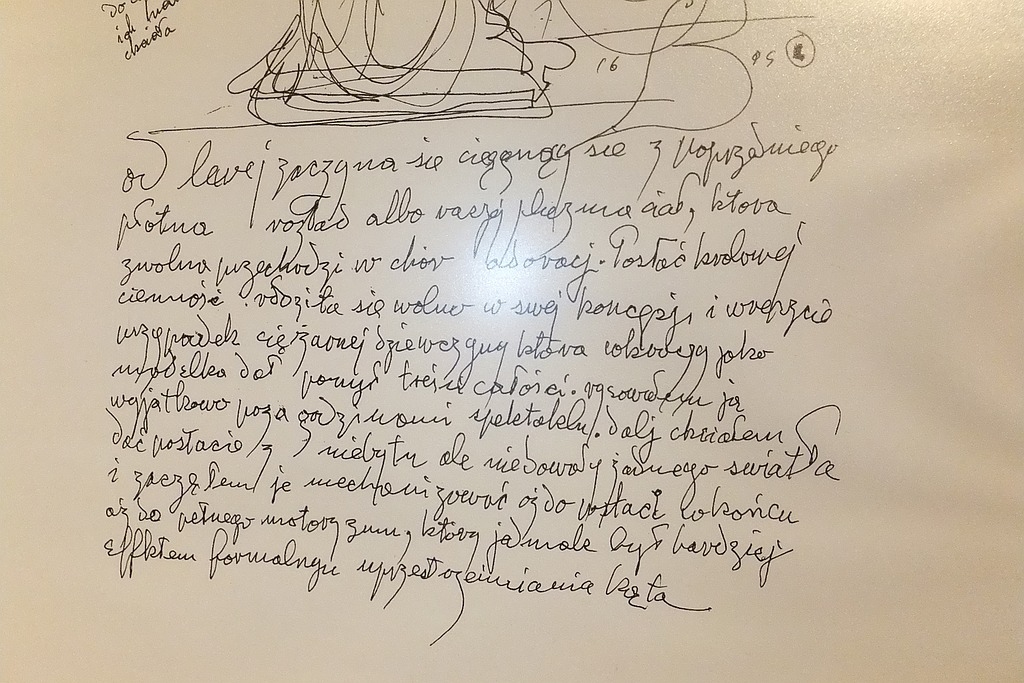 do
ich
chciała
16
95
od lewej zaczyna się ciągnący się z poprzedniego
płótna rostać albo raczej plazma ciał, ktora
zwolna przechodzi w chór adoracj. Postać krolowej
ciemność. rodziła się wolno w swej koncepcj, i wreszcie
przypadek ciężarnej dziewczyny ktora wkroczy jako
modelka dał pomysł treści całości. rysowałem ją
wyjątkowo poza godzinami spektaklu. dalj chciałem
dać postacie z niebytu ale nie żadnego swiatła
i zacząłem je mechanizować aż do postaci w końcu
aż do pełnego motoryzmu, który jednak był bardziej
effktem formalnym uprzestrzenniania kąta